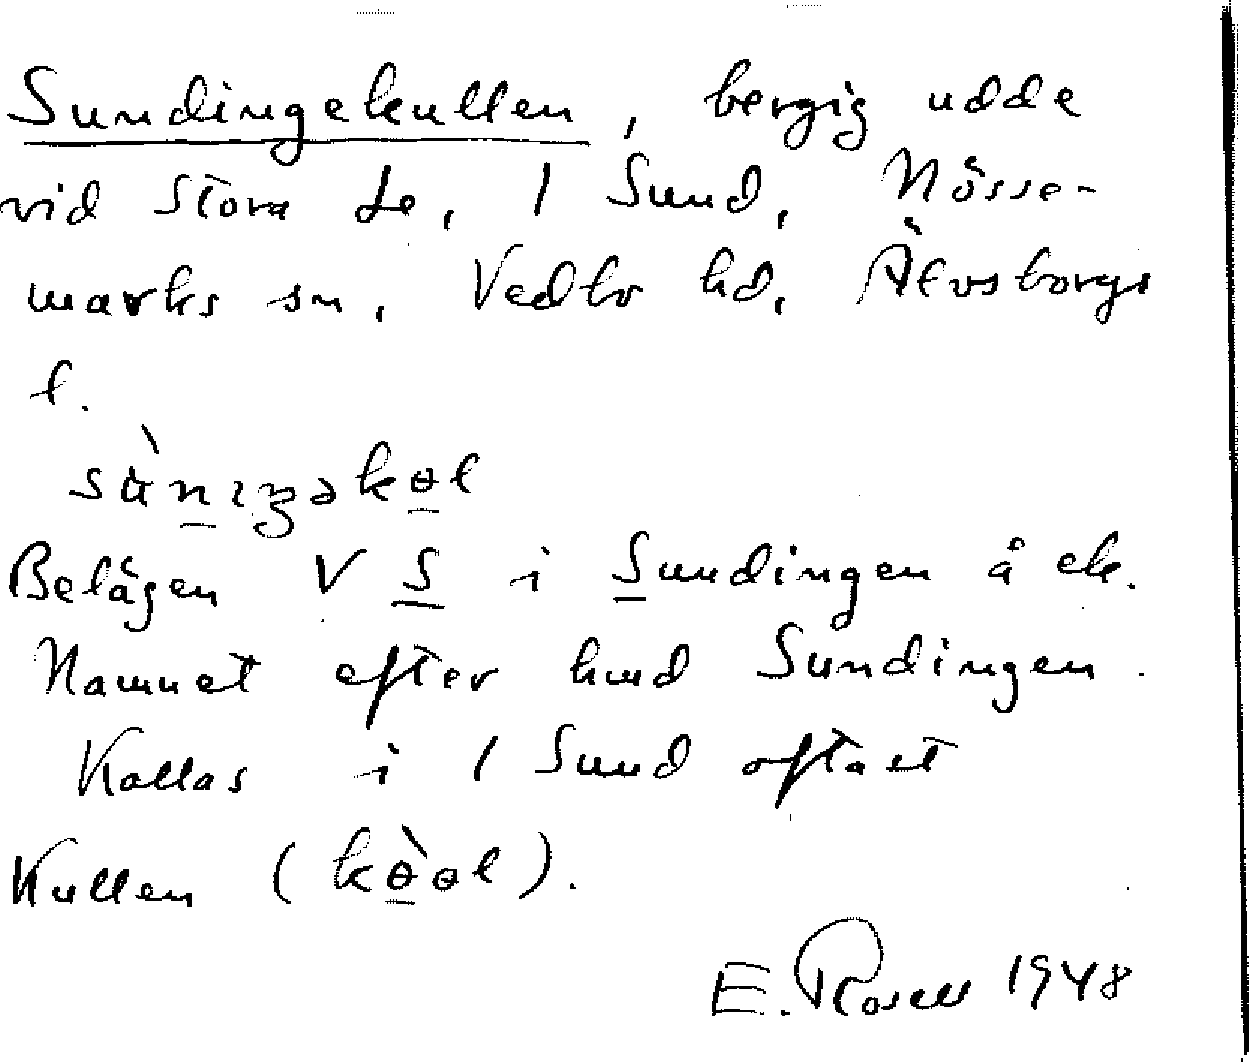 Sundingekullen, bergig udde
vid Stora Le, 1 Sund, Nösse-
marks sn, Vedbo hd, Älvsborgs
l.
Belägen V S i Sundingen å ek.
Namnet efter hmd Sundingen.
Kallas i 1 Sund oftast
Kullen (k).
E. Rosell 1948